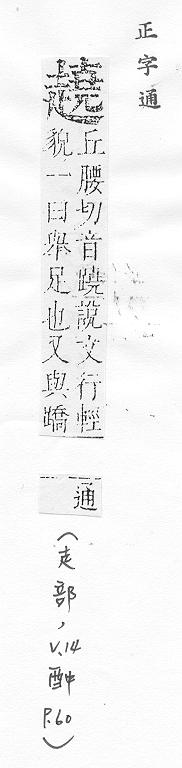 正字通
趬
丘腰切音蹺說文行輕
貌一曰舉足也又與蹻
通
(走部,
V.14
酉中
P.60)